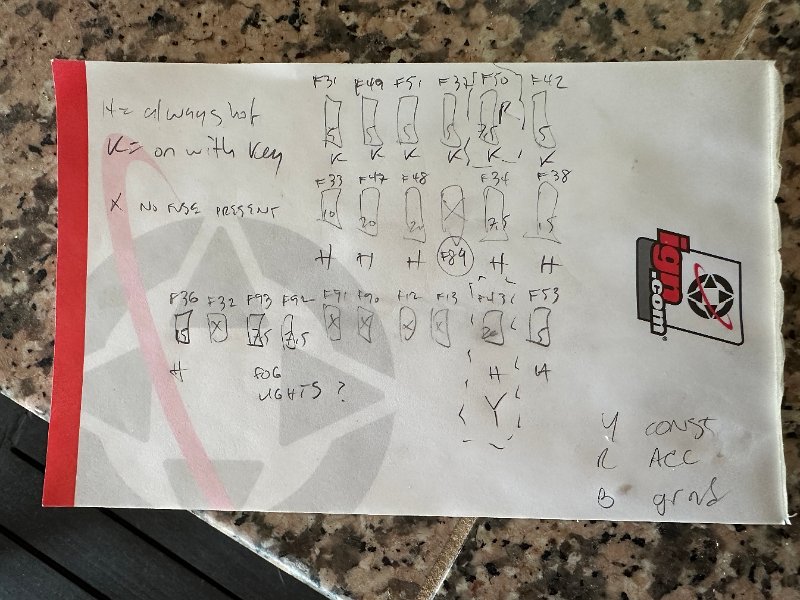 F31 F49 F51 F37 F50 F42
H = always hot
5 5 5 5 7.5 R 5
K = on with key
K K K K K K
F33 F47 F48 F34 F38
X NO FUSE PRESENT
10 20 20 X 7.5 15
H H H F89 H H
F36 F32 F93 F92 F91 F90 F12 F13 F43 F53
15 X 7.5 7.5 X X X X 20 5
H FOG H H
LIGHTS ?
Y
ign
.com
Y const
R ACC
B grnd